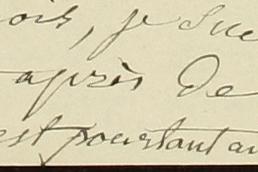 ois, je suc
après de
est pourtant au